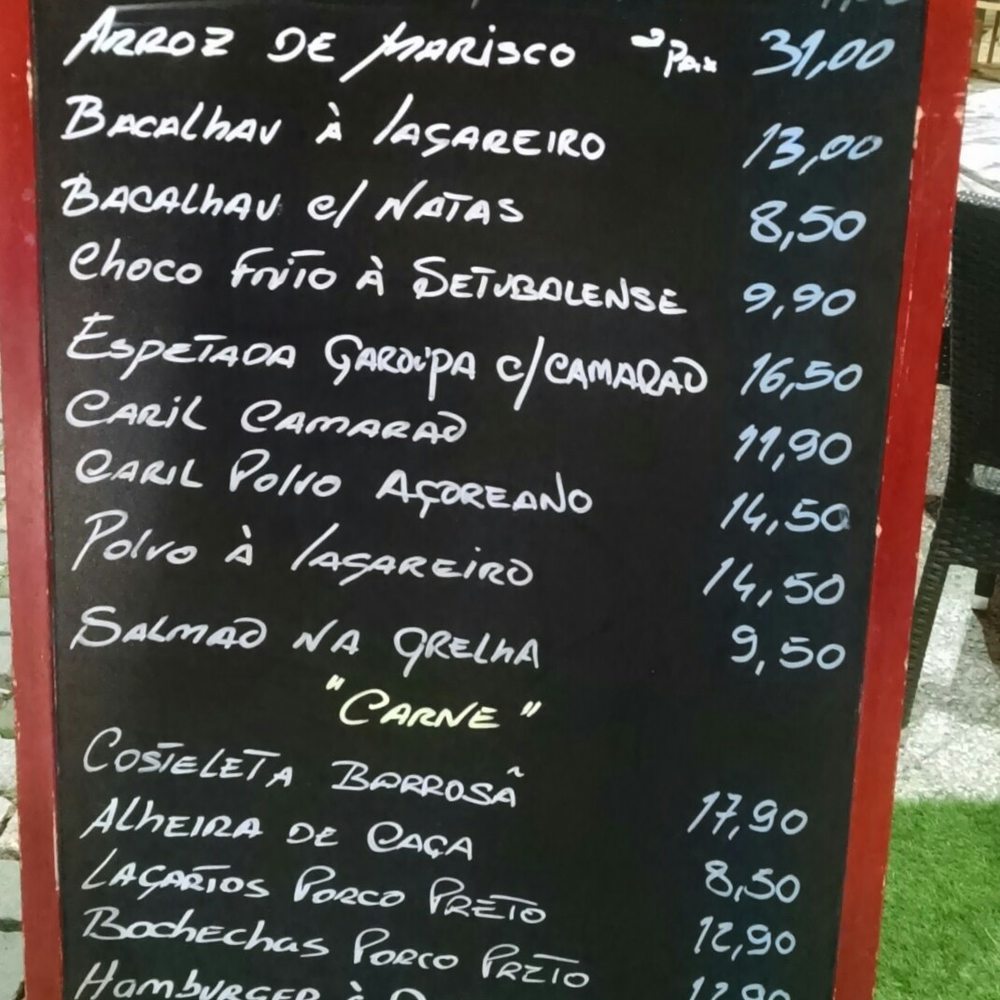 ARROZ DE MARISCO 2 PAX 31,00
BACALHAU À LAGAREIRO 13,00
BACALHAU C/ NATAS 8,50
CHOCO FRITO À SETUBALENSE 9,90
ESPETADA GAROUPA C/CAMARAO 16,50
CARIL CAMARAO 11,90
CARIL POLVO AÇOREANO 14,50
POLVO À LAGAREIRO 14,50
SALMAO NA GRELHA 9,50
"CARNE"
COSTELETA BARROSÃ 17,90
ALHEIRA DE CAÇA 8,50
LAGARTOS PORCO PRETO 12,90
BOCHECHAS PORCO PRETO 12,90
HAMBURGER À